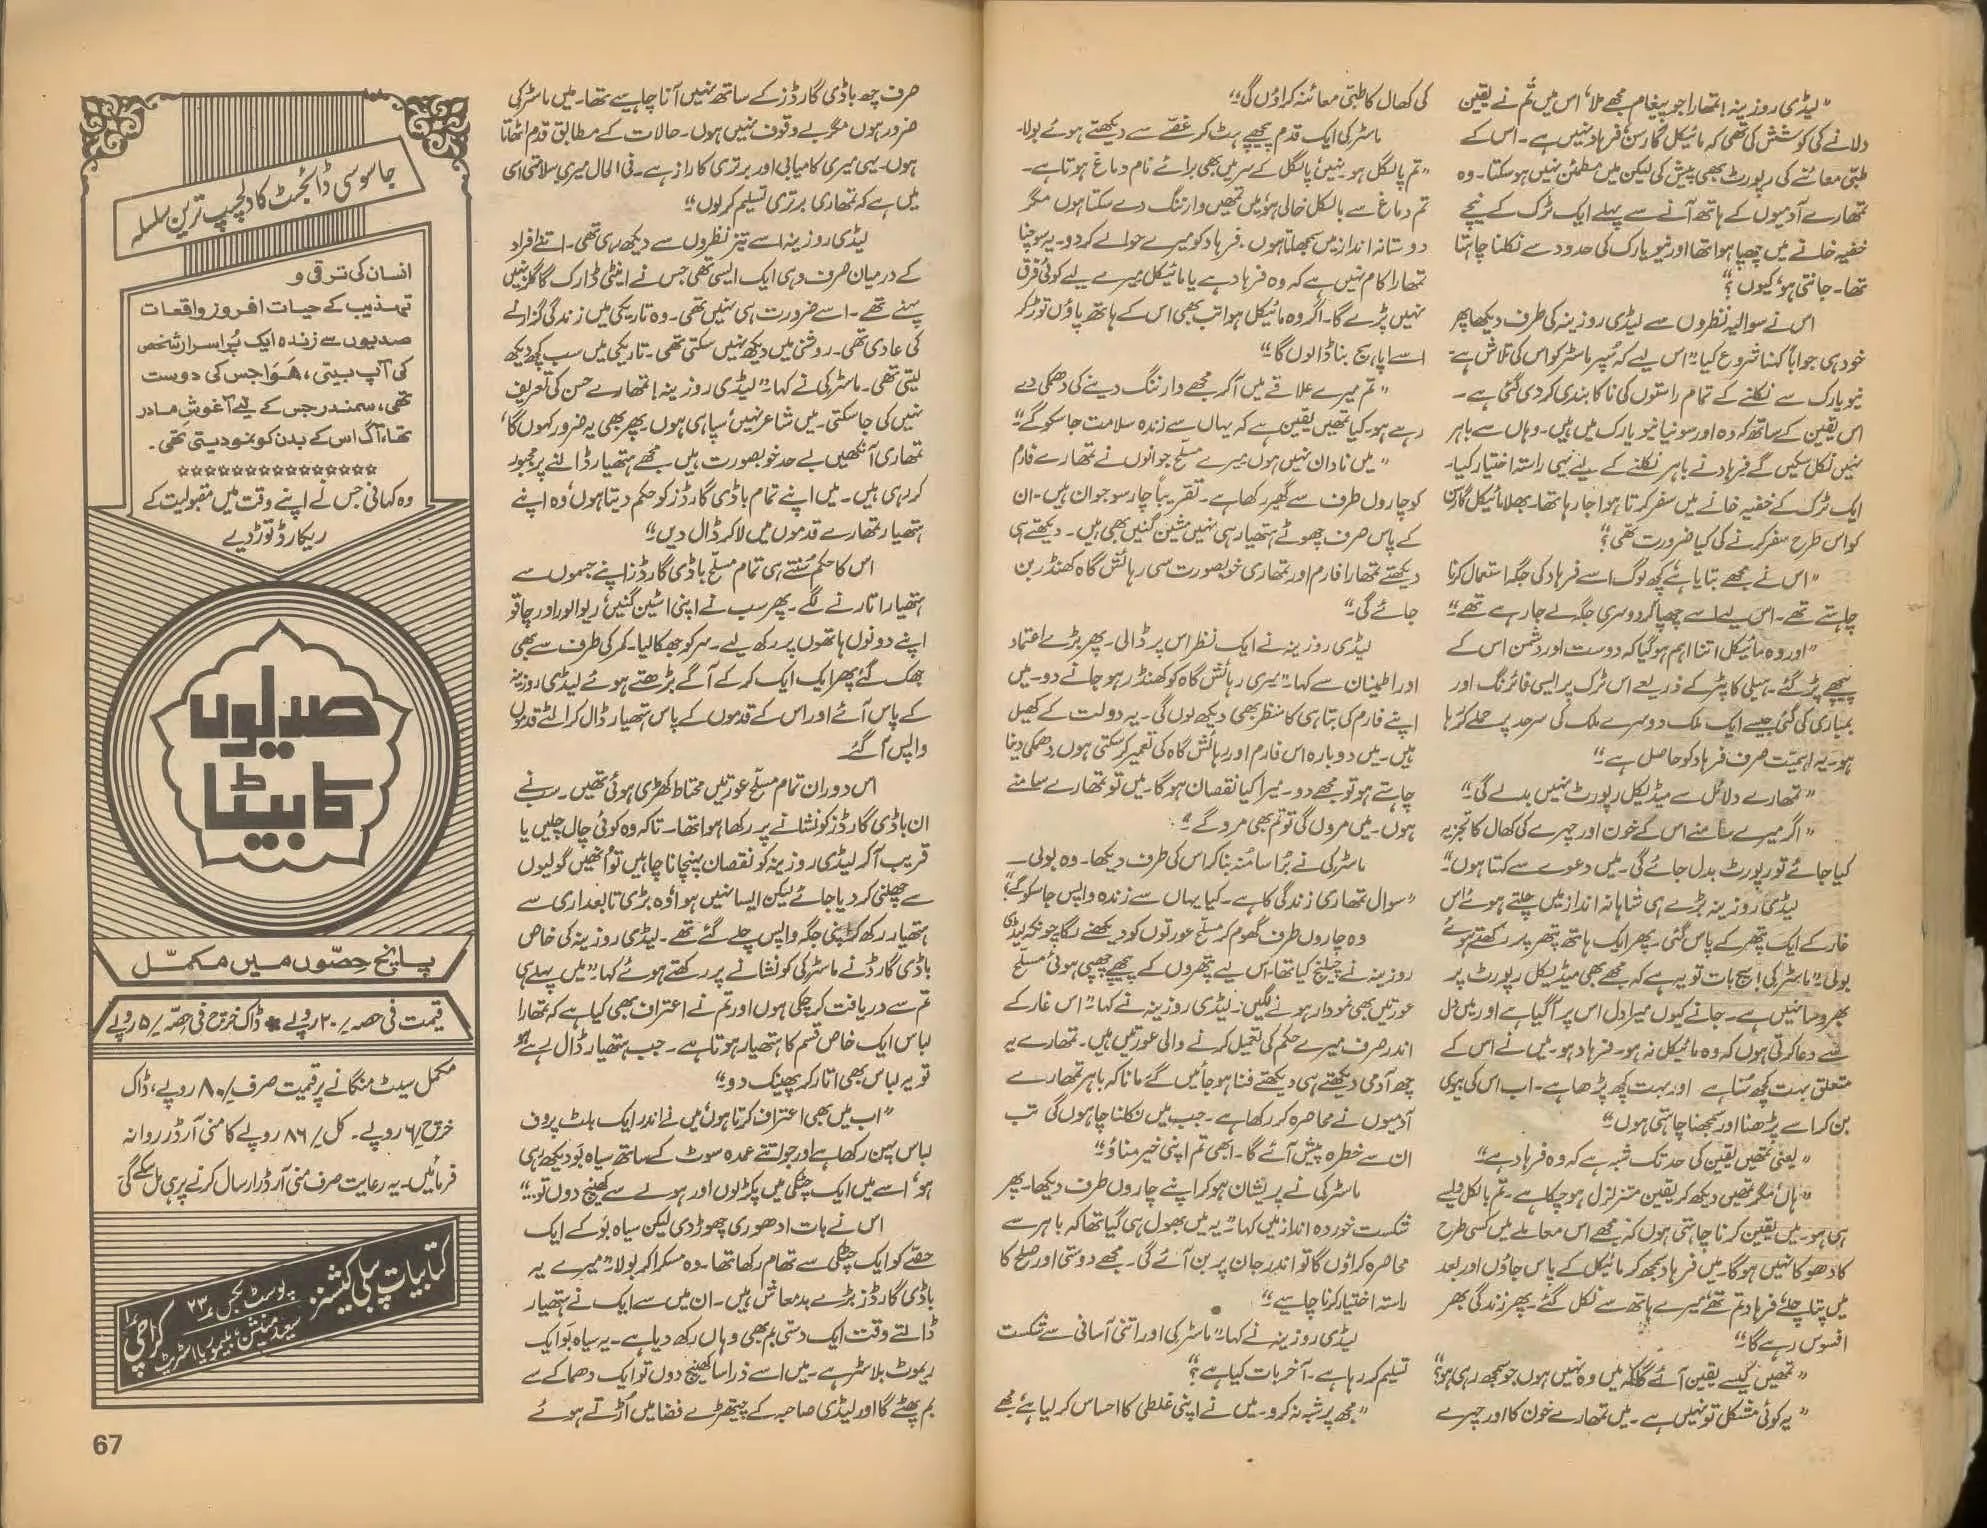 ”لیڈی روزینہ! تمھارا جو پیغام مجھے ملا، اس میں تُم نے یقین
دلانے کی کوشش کی تھی کہ مائیکل گارسن، فرہاد نہیں ہے۔ اس کے
طبّی معائنے کی رپورٹ بھی پیش کی لیکن میں مطمئن نہیں ہو سکتا۔ وہ
تمھارے آدمیوں کے ہاتھ آنے سے پہلے ایک ٹرک کے نیچے
خفیہ خانے میں چھپا ہوا تھا اور نیویارک کی حدود سے نکلنا چاہتا
تھا۔ جانتی ہو، کیوں؟“
اس نے سوالیہ نظروں سے لیڈی روزینہ کی طرف دیکھا پھر
خود ہی جواباً کہنا شروع کیا۔”اس لیے کہ سُپر ماسٹر کو اس کی تلاش ہے۔
نیویارک سے نکلنے کے تمام راستوں کی ناکا بندی کر دی گئی ہے۔
اس یقین کے ساتھ کہ وہ اور سونیا نیویارک میں ہیں۔ وہاں سے باہر
نہیں نکل سکیں گے فرہاد نے باہر نکلنے کے لیے یہی راستہ اختیار کیا۔
ایک ٹرک کے خفیہ خانے میں سفر کرتا ہوا جا رہا تھا۔ بھلا مائیکل گارسن
کو اس طرح سفر کرنے کی کیا ضرورت تھی؟“
”اس نے مجھے بتایا ہے، کچھ لوگ اسے فرہاد کی جگہ استعمال کرنا
چاہتے تھے۔ اس لیے اسے چھپا کر دوسری جگہ لے جا رہے تھے“
”اور وہ مائیکل اتنا اہم ہو گیا کہ دوست اور دشمن اس کے
پیچھے پڑ گئے۔ ہیلی کاپٹر کے ذریعے اس ٹرک پر ایسی فائرنگ اور
بمباری کی گئی جیسے ایک ملک دوسرے ملک کی سرحد پر حملے کر رہا
ہو۔ یہ اہمیّت صرف فرہاد کو حاصل ہے“
”تمھارے دلائل سے میڈیکل رپورٹ نہیں بدلے گی“
”اگر میرے سامنے اس کے خون اور چہرے کی کھال کا تجزیہ
کیا جائے تو رپورٹ بدل جائے گی۔ میں دعوے سے کہتا ہوں“
لیڈی روزینہ بڑے ہی شاہانہ انداز میں چلتے ہوئے اس
غار کے ایک پتھر کے پاس گئی۔ پھر ایک ہاتھ پتھر پر رکھتے ہوئے
بولی ”ماسٹر کی! سچ بات تو یہ ہے کہ مجھے بھی میڈیکل رپورٹ پر
بھروسا نہیں ہے۔ جانے کیوں میرا دل اس پر آ گیا ہے اور میں دل
سے دعا کرتی ہوں کہ وہ مائیکل نہ ہو۔ فرہاد ہو۔ میں نے اس کے
متعلق بہت کچھ سُنا ہے اور بہت کچھ پڑھا ہے۔ اب اس کی بیوی
بن کر اسے پڑھنا اور سمجھنا چاہتی ہوں“
”یعنی تمھیں یقین کی حد تک شبہ ہے کہ وہ فرہاد ہے“
”ہاں، مگر تمھیں دیکھ کر یقین متزلزل ہو چکا ہے۔ تم بالکل ویسے
ہی ہو۔ میں یقین کرنا چاہتی ہوں کہ مجھے اس معاملے میں کسی طرح
کا دھوکا نہیں ہوگا۔ میں فرہاد سمجھ کر مائیکل کے پاس جاؤں اور بعد
میں پتا چلے، فرہاد تم تھے، میرے ہاتھ سے نکل گئے۔ پھر زندگی بھر
افسوس رہے گا“
”تمھیں کیسے یقین آئے گا کہ میں وہ نہیں ہوں جو سمجھ رہی ہو؟“
”یہ کوئی مشکل تو نہیں ہے۔ میں تمھارے خون کا اور چہرے
کی کھال کا طبّی معائنہ کراؤں گی“
ماسٹر کی ایک قدم پیچھے ہٹ کر غصّے سے دیکھتے ہوئے بولا۔
”تم پاگل ہو۔ نہیں، پاگل کے سر میں بھی برائے نام دماغ ہوتا ہے۔
تم دماغ سے بالکل خالی ہو، میں تمھیں وارننگ دے سکتا ہوں مگر
دوستانہ انداز میں سمجھاتا ہوں، فرہاد کو میرے حوالے کر دو۔ یہ سوچنا
تمھارا کام نہیں ہے کہ وہ فرہاد ہے یا مائیکل، میرے لیے کوئی فرق
نہیں پڑے گا۔ اگر وہ مائیکل ہوا تب بھی اس کے ہاتھ پاؤں توڑ کر
اسے اپاہج بنا ڈالوں گا“
”تم میرے علاقے میں آ کر مجھے وارننگ دینے کی دھمکی دے
رہے ہو۔ کیا تمھیں یقین ہے کہ یہاں سے زندہ سلامت جا سکو گے“
”میں نادان نہیں ہوں، میرے مسلّح جوانوں نے تمھارے فارم
کو چاروں طرف سے گھیر رکھا ہے۔ تقریباً چار سو جوان ہیں۔ ان
کے پاس صرف چھوٹے ہتھیار ہی نہیں مشین گنیں بھی ہیں۔ دیکھتے ہی
دیکھتے تمھارا فارم اور تمھاری خوبصورت سی رہائش گاہ کھنڈر بن
جائے گی“
لیڈی روزینہ نے ایک نظر اس پر ڈالی۔ پھر بڑے اعتماد
اور اطمینان سے کہا۔”میری رہائش گاہ کو کھنڈر ہو جانے دو۔ میں
اپنے فارم کی تباہی کا منظر بھی دیکھ لوں گی۔ یہ دولت کے کھیل
ہیں۔ میں دوبارہ اس فارم اور رہائش گاہ کی تعمیر کر سکتی ہوں، دھمکی دینا
چاہتے ہو تو مجھے دو۔ میرا کیا نقصان ہوگا۔ میں تو تمھارے سامنے
ہوں۔ میں مروں گی تو تم بھی مرو گے“
ماسٹر کی نے بُرا سا منہ بنا کر اس کی طرف دیکھا۔ وہ بولی۔
”سوال تمھاری زندگی کا ہے۔ کیا یہاں سے زندہ واپس جا سکو گے؟“
وہ چاروں طرف گھوم کر مسلّح عورتوں کو دیکھنے لگا۔ چونکہ لیڈی
روزینہ نے چیلنج کیا تھا۔ اس لیے پتھروں کے پیچھے چھپی ہوئی، مسلّح
عورتیں بھی نمودار ہونے لگیں۔ لیڈی روزینہ نے کہا۔”اس غار کے
اندر صرف میرے حکم کی تعمیل کرنے والی عورتیں ہیں۔ تمھارے یہ
چھ آدمی دیکھتے ہی دیکھتے فنا ہو جائیں گے مانا کہ باہر تمھارے
آدمیوں نے محاصرہ کر رکھا ہے۔ جب میں نکلنا چاہوں گی تب
ان سے خطرہ پیش آئے گا۔ ابھی تم اپنی خیر مناؤ“
ماسٹر کی نے پریشان ہو کر اپنے چاروں طرف دیکھا۔ پھر
شکست خوردہ انداز میں کہا۔”یہ میں بھول ہی گیا تھا کہ باہر سے
محاصرہ کراؤں گا تو اندر جان پر بن آئے گی۔ مجھے دوستی اور صلح کا
راستہ اختیار کرنا چاہیے“
لیڈی روزینہ نے کہا۔”ماسٹر کی اور اتنی آسانی سے شکست
تسلیم کر رہا ہے۔ آخر بات کیا ہے؟“
”مجھ پر شبہ نہ کرو۔ میں نے اپنی غلطی کا احساس کر لیا ہے، مجھے
صرف چھ باڈی گارڈز کے ساتھ نہیں آنا چاہیے تھا۔ میں ماسٹر کی
ضرور ہوں مگر بے وقوف نہیں ہوں۔ حالات کے مطابق قدم اٹھاتا
ہوں۔ یہی میری کامیابی اور برتری کا راز ہے۔ فی الحال میری سلامتی اسی
میں ہے کہ تمھاری برتری تسلیم کر لوں“
لیڈی روزینہ اسے تیز نظروں سے دیکھ رہی تھی۔ اتنے افراد
کے درمیان صرف وہی ایک ایسی تھی جس نے اینٹی ڈارک گاگلز نہیں
پہنے تھے۔ اسے ضرورت ہی نہیں تھی۔ وہ تاریکی میں زندگی گزارنے
کی عادی تھی۔ روشنی میں دیکھ نہیں سکتی تھی۔ تاریکی میں سب کچھ دیکھ
لیتی تھی۔ ماسٹر کی نے کہا۔”لیڈی روزینہ! تمھارے حسن کی تعریف
نہیں کی جا سکتی۔ میں شاعر نہیں، سپاہی ہوں۔ پھر بھی یہ ضرور کہوں گا،
تمھاری آنکھیں بے حد خوبصورت ہیں۔ مجھے ہتھیار ڈالنے پر مجبور
کر رہی ہیں۔ میں اپنے تمام باڈی گارڈز کو حکم دیتا ہوں، وہ اپنے
ہتھیار تمھارے قدموں میں لا کر ڈال دیں“
اس کا حکم سُنتے ہی تمام مسلّح باڈی گارڈز اپنے جسموں سے
ہتھیار اتارنے لگے۔ پھر سب نے اپنی اسٹین گنیں، ریوالور اور چاقو
اپنے دونوں ہاتھوں پر رکھ لیے۔ سر کو جھکا لیا۔ کمر کی طرف سے بھی
جھک گئے پھر ایک ایک کر کے آگے بڑھتے ہوئے لیڈی روزینہ
کے پاس آئے اور اس کے قدموں کے پاس ہتھیار ڈال کر الٹے قدموں
واپس آ گئے
اس دوران تمام مسلّح عورتیں محتاط کھڑی ہوئی تھیں۔ سب نے
ان باڈی گارڈز کو نشانے پر رکھا ہوا تھا۔ تاکہ وہ کوئی چال چلیں یا
قریب آ کر لیڈی روزینہ کو نقصان پہنچانا چاہیں تو اُنھیں گولیوں
سے چھلنی کر دیا جائے لیکن ایسا نہیں ہوا، وہ بڑی تابعداری سے
ہتھیار رکھ کر اپنی جگہ واپس چلے گئے تھے۔ لیڈی روزینہ کی خاص
باڈی گارڈ نے ماسٹر کی کو نشانے پر رکھتے ہوئے کہا۔”میں پہلے ہی
تم سے دریافت کر چکی ہوں اور تم نے اعتراف بھی کیا ہے کہ تمھارا
لباس ایک خاص قسم کا ہتھیار ہوتا ہے۔ جب ہتھیار ڈال رہے ہو
تو یہ لباس بھی اتار کر پھینک دو“
”اب میں بھی اعتراف کرتا ہوں، میں نے اندر ایک بلٹ پروف
لباس پہن رکھا ہے اور جو اتنے عمدہ سوٹ کے ساتھ سیاہ بَو دیکھ رہی
ہو، اسے میں ایک چٹکی میں پکڑ لوں اور ہولے سے کھینچ دوں تو۔۔“
اس نے بات ادھوری چھوڑ دی لیکن سیاہ بَو کے ایک
حصّے کو ایک چٹکی سے تھام رکھا تھا۔ وہ مسکرا کر بولا۔”میرے یہ
باڈی گارڈز بڑے بدمعاش ہیں۔ ان میں سے ایک نے ہتھیار
ڈالتے وقت ایک دستی بم بھی وہاں رکھ دیا ہے۔ یہ سیاہ بَو ایک
ریموٹ بلاسٹر ہے۔ میں اسے ذرا سا کھینچ دوں تو ایک دھماکے سے
بم پھٹے گا اور لیڈی صاحبہ کے چیتھڑے فضا میں اُڑتے ہوئے
جاسوسی ڈائجسٹ کا دلچسپ ترین سلسلہ
انسان کی ترقی و
تہذیب کے حیات افروز واقعات
صدیوں سے زندہ ایک پُراسرار شخص
کی آپ بیتی، ھَوا جس کی دوست
تھی، سمندر جس کے لیے آغوشِ مادر
تھا، آگ اس کے بدن کو نمو دیتی تھی۔
☆☆☆☆☆☆☆☆☆☆☆☆☆☆☆
وہ کہانی جس نے اپنے وقت میں مقبولیت کے
ریکارڈ توڑ دیے
صدیوں
کا بیٹا
پانچ حصّوں میں مکمّل
قیمت فی حصہ /۲۰ روپے ✱ ڈاک خرچ فی حصّہ /۵ روپے
مکمل سیٹ منگانے پر قیمت صرف /۸۰ روپے، ڈاک
خرچ /۶ روپے۔ کل /۸۶ روپے کا منی آرڈر روانہ
فرمائیں۔ یہ رعایت صرف منی آرڈر ارسال کرنے پر ہی مل سکے گی
کتابیات پبلی کیشنز
پوسٹ بکس ۲۳
سعید منشن، بلیموریا اسٹریٹ
کراچی ۱
67